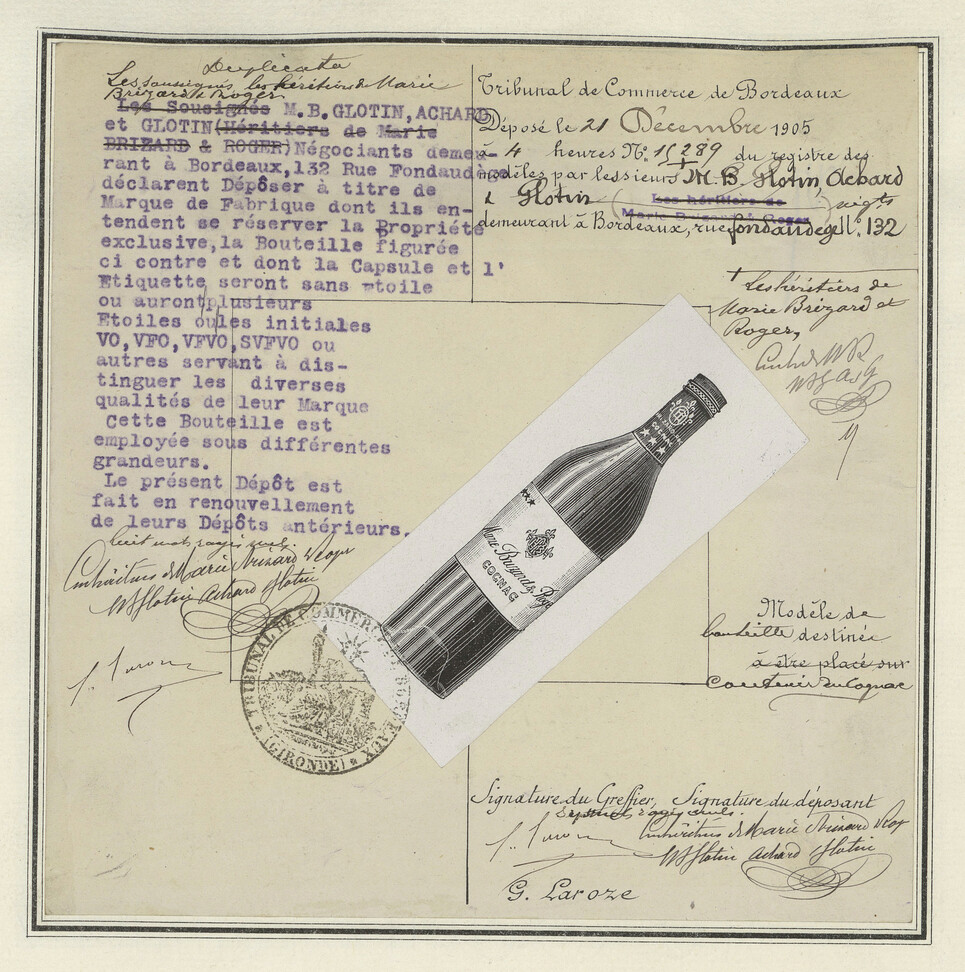 Duplicata
Les soussignés les héritiers de Marie
Brizard & Roger
Les Sousignés M.B.GLOTIN,ACHARD
et GLOTIN(Héritiers de Marie
BRIZARD & ROGER)Négociants demeu-
rant à Bordeaux,132 Rue Fondaudège
déclarent Dépôser à titre de
Marque de Fabrique dont ils en-
tendent se réserver la Propriété
exclusive,la Bouteille figurée
ci contre et dont la Capsule et l'
Etiquette seront sans etoile
ou auront plusieurs
Etoiles ou les initiales
VO,VFO,VFVO,SVFVO ou
autres servant à dis-
tinguer les diverses
qualités de leur Marque
Cette Bouteille est
employée sous différentes
grandeurs.
Le présent Dépôt est
fait en renouvellement
de leurs Dépôts antérieurs.
huit mots rayés nuls.
Les héritiers de Marie Brizard & Roger
MB Glotin Achard Glotin
Tribunal de Commerce de Bordeaux
Déposé le 21 Décembre 1905
4 heures N°. 289 du registre des
modèles par les sieurs M. B. Glotin, Achard
& Glotin (Les héritiers de
Marie Brizard & Roger) négts
demeurant à Bordeaux, rue fondaudège N. 132
+ Les héritiers de
Marie Brizard et
Roger,
COGNAC
★★★
★★★
Marie Brizard & Roger
COGNAC
Modèle de
bouteille destinée
à être placé sur
Contenir du Cognac
TRIBUNAL DE COMMERCE DE BORDEAUX
(GIRONDE)
Signature du Greffier, Signature du déposant
Les héritiers de Marie Brizard & Roger
MB Glotin Achard Glotin
G. Laroze